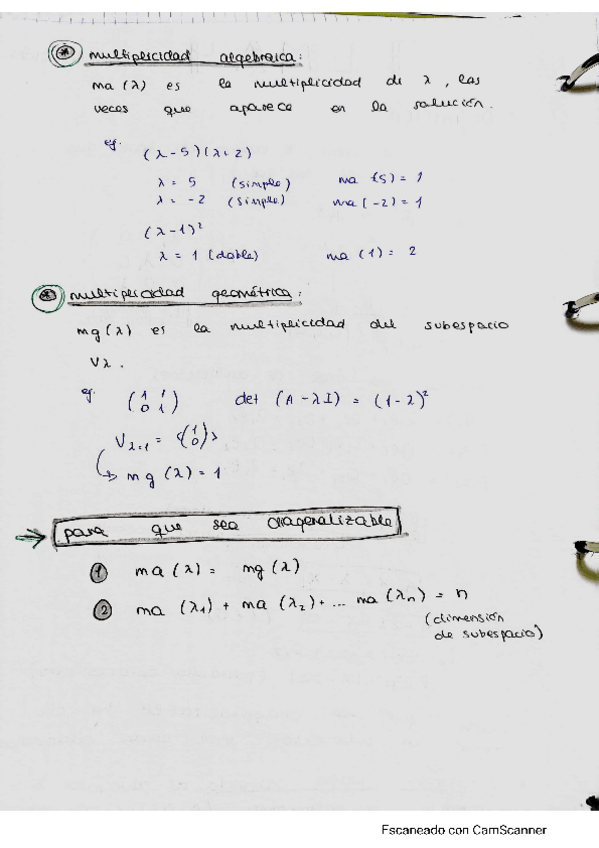 * multiplicidad algebraica:
ma (λ) es la multiplicidad de λ, las
veces que aparece en la solución.
eg.
(λ-5)(λ+2)
λ = 5 (simple) ma (5) = 1
λ = -2 (simple) ma (-2) = 1
(λ-1)²
λ = 1 (doble) ma (1) = 2
* multiplicidad geométrica:
mg (λ) es la multiplicidad del subespacio
Vλ.
eg. (1 1
0 1) det (A - λI) = (1-λ)²
Vλ=1 = <(1
0)>
↳ mg (λ) = 1
→ para que sea diagonalizable
1 ma (λ) = mg (λ)
2 ma (λ1) + ma (λ2) + ... ma (λn) = n
(dimensión
de subespacio)
Escaneado con CamScanner